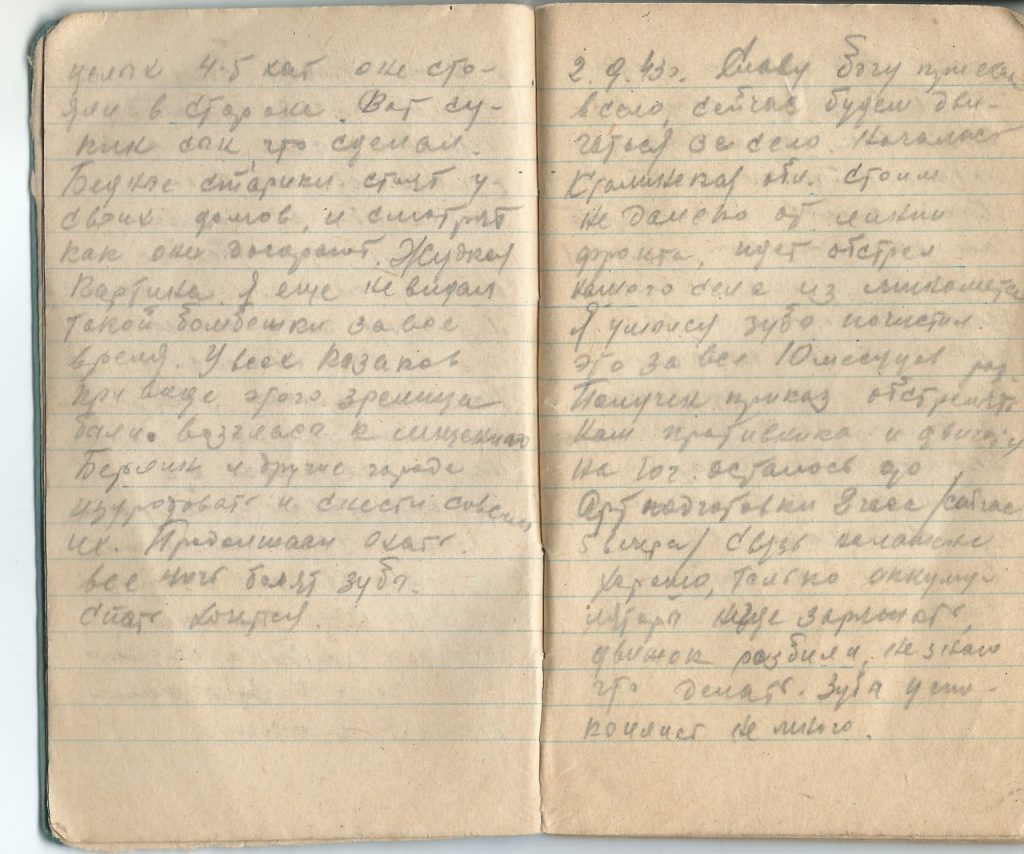 целых 4-5 хат они сто-
яли в стороне. Вот су-
кин сын, что сделал.
Бедные старики стоят у
своих домов, и смотрят
как они догорают. Жудкая
картина. Я еще не видал
такой бомбешки за все
время. У всех казаков
при виде этого зрелища
была
Берлин и другие города
изуродовать и снести совсем
их. Продолжаем ехать.
всю ночь болят зубы.
Спать хочется.
2.9.43г. Славу богу приехал
в село, сейчас будем дви-
гаться за село. Началась
Сталинская обл. Стоим
не далеко от линии
фронта, идет обстрел
нашего села из
Я умылся зубы почистил
это за все 10 месяцев раз.
Получен приказ
нам противника и
на 10ч. осталось до
Арт подготовки 2 часа /сейчас
5 вечера/ Связь налажена
хорошо, только аккуму-
ляторы негде заряжать,
движок разбили, не знаю
что делать. Зубы успо-
коились не много.